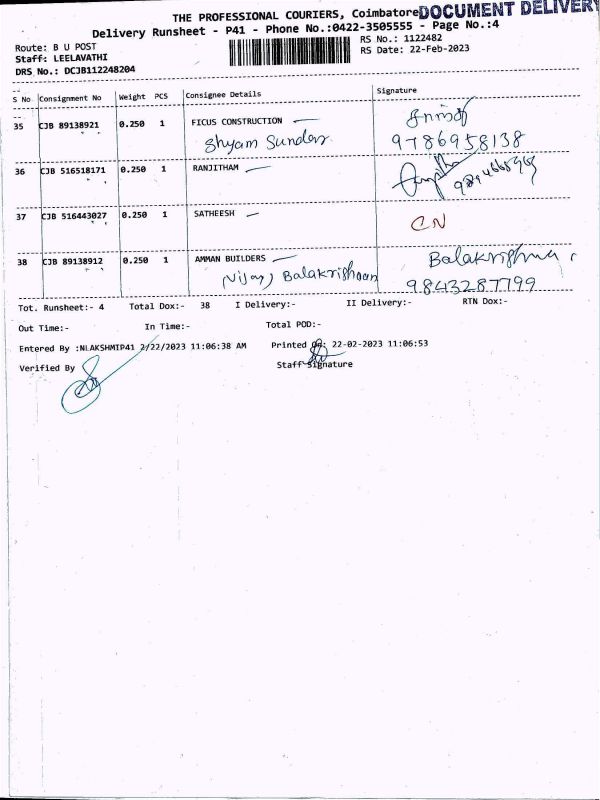 THE PROFESSIONAL COURIERS, Coimbatore DOCUMENT DELIVERY
Delivery Runsheet - P41 - Phone No.:0422-3505555 - Page No.:4
Route: B U POST
RS No.: 1122482
Staff: LEELAVATHI
RS Date: 22-Feb-2023
DRS No.: DCJB112248204
S No Consignment No Weight PCS Consignee Details Signature
35 CJB 89138921 0.250 1 FICUS CONSTRUCTION
Shyam Sundar 9786958138
36 CJB 516518171 0.250 1 RANJITHAM
37 CJB 516443027 0.250 1 SATHEESH
CN
38 CJB 89138912 0.250 1 AMMAN BUILDERS Balakrishna
Vijay Balakrishnan 9843287799
Tot. Runsheet:- 4 Total Dox:- 38 I Delivery:- II Delivery:- RTN Dox:-
Out Time:- In Time:- Total POD:-
Entered By :NLAKSHMIP41 2/22/2023 11:06:38 AM Printed On: 22-02-2023 11:06:53
Verified By Staff Signature